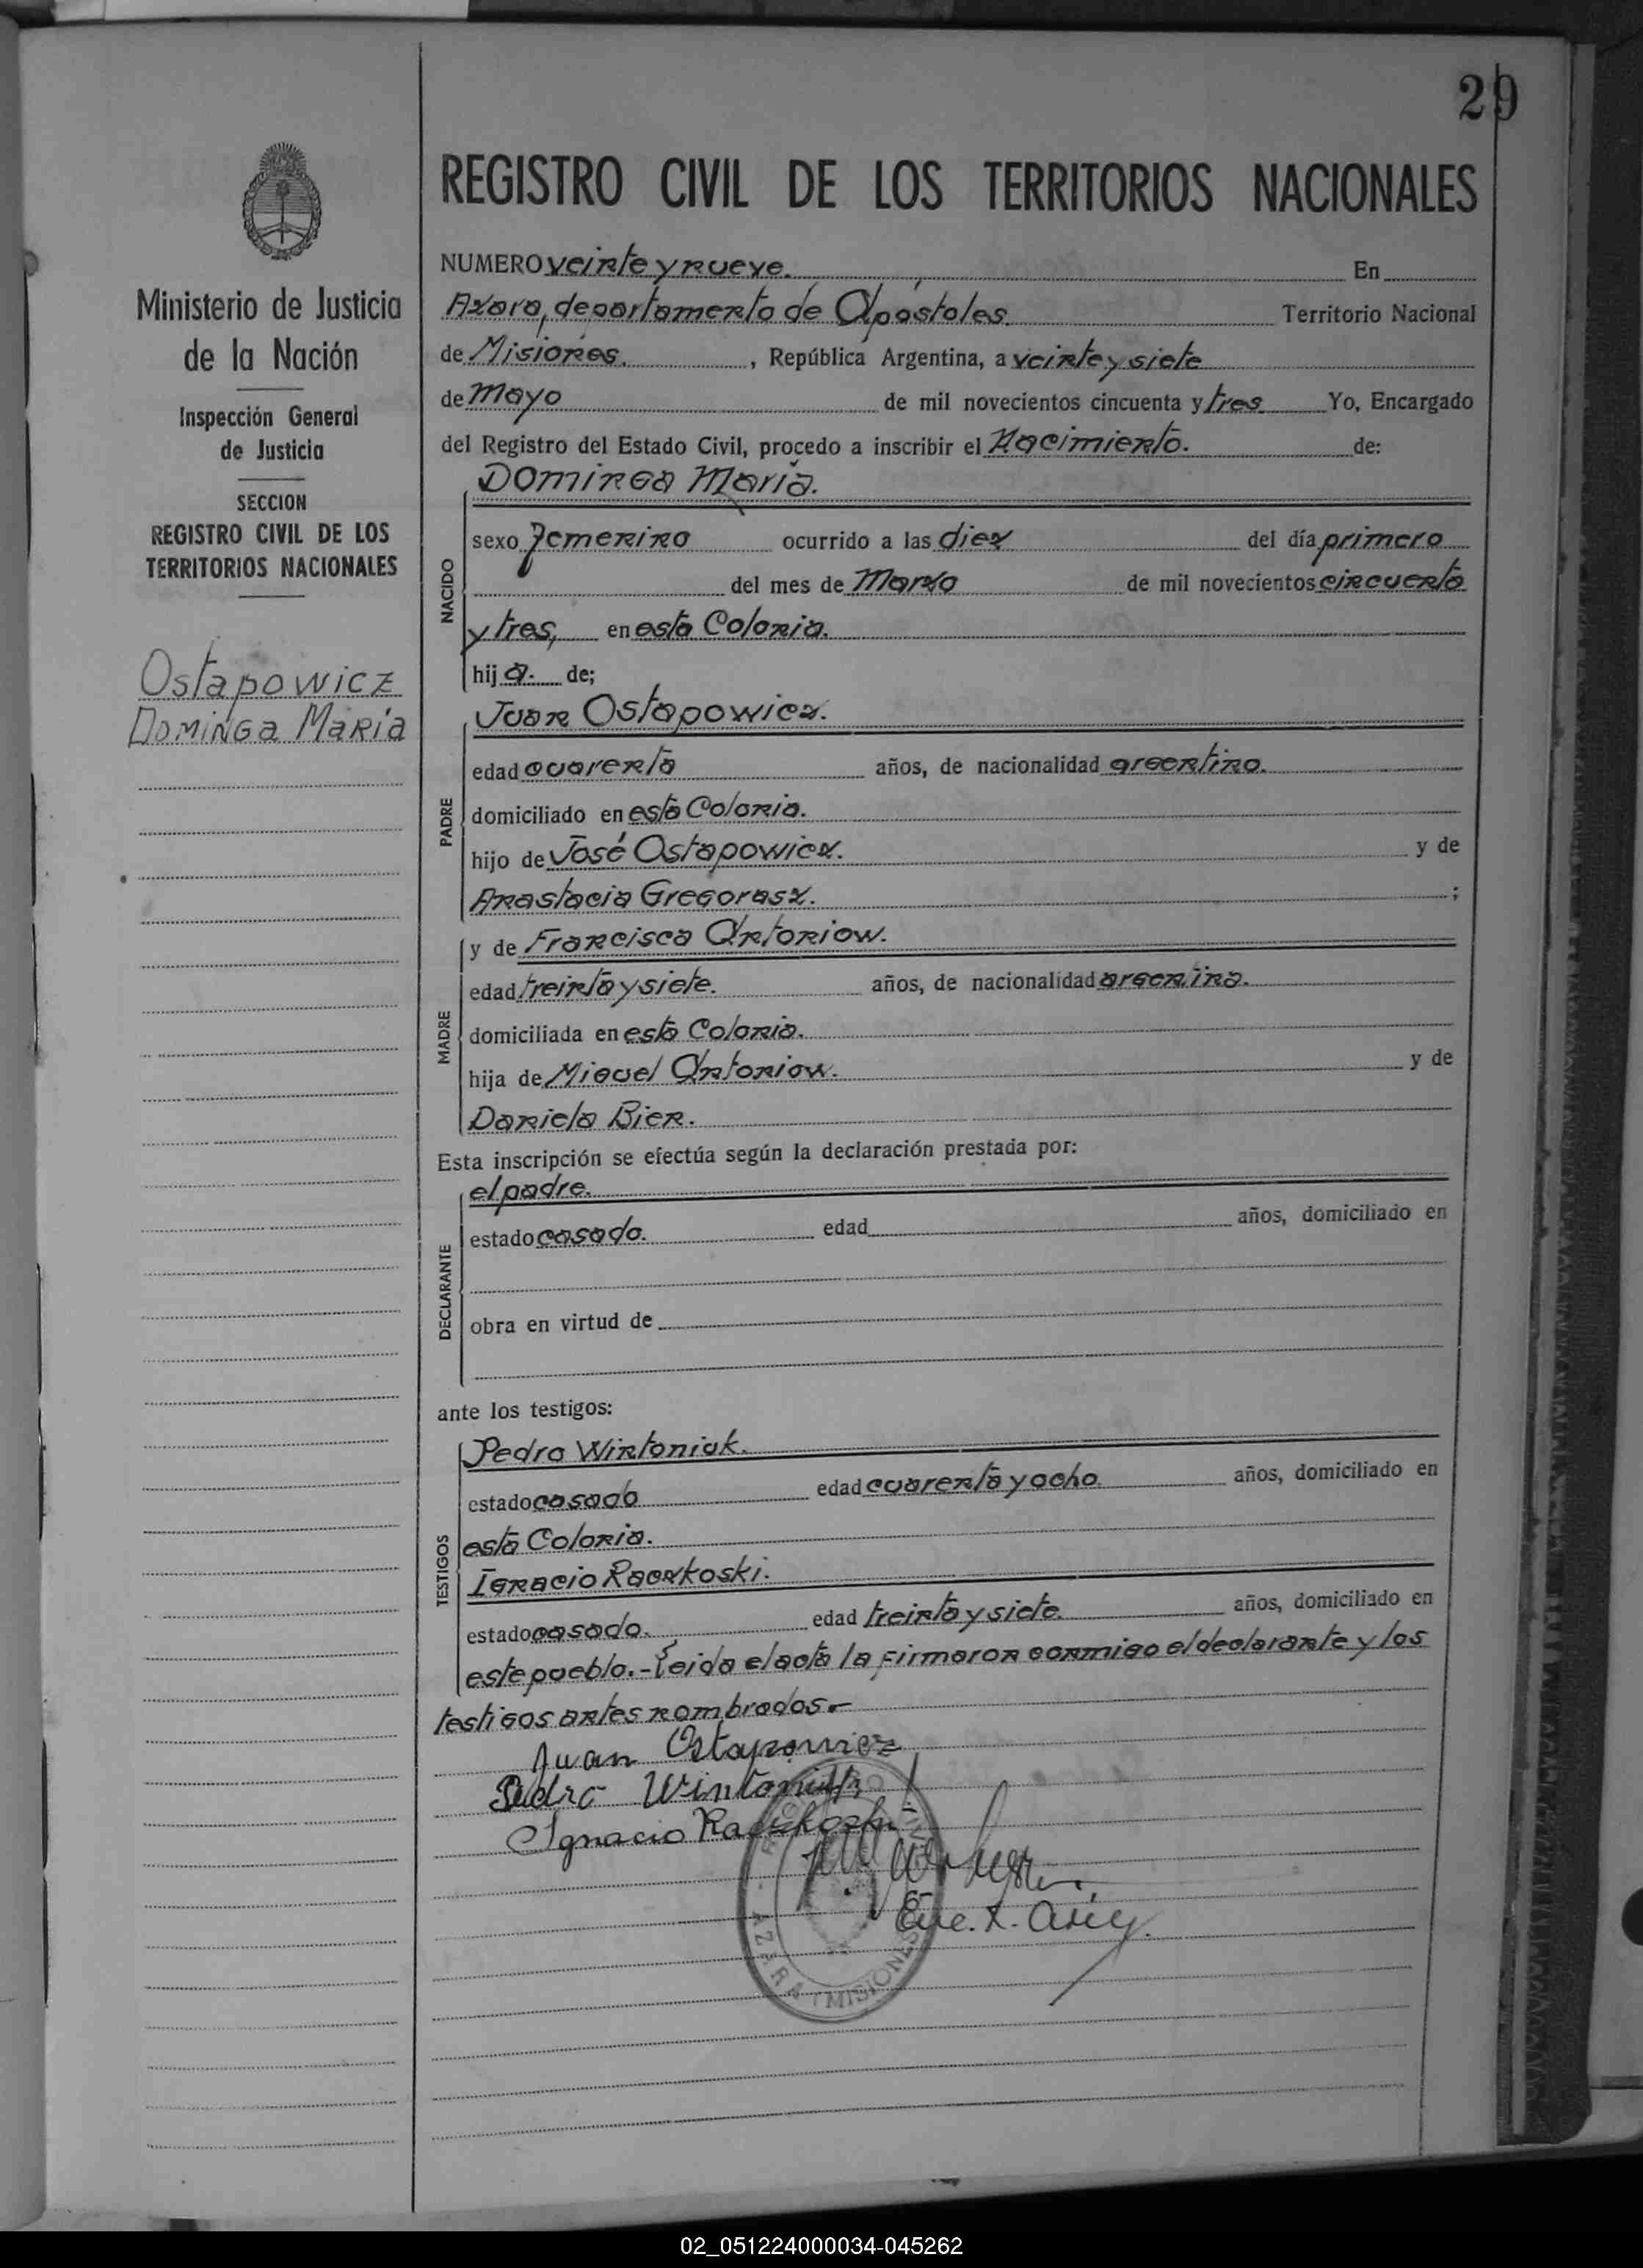 29
REGISTRO CIVIL DE LOS TERRITORIOS NACIONALES
Ministerio de Justicia
de la Nación
Inspección General
de Justicia
SECCION
REGISTRO CIVIL DE LOS
TERRITORIOS NACIONALES
Ostapowicz
Dominga María
NUMERO veinte y nueve. En
Azara, departamento de Apóstoles. Territorio Nacional
de Misiones. , República Argentina, a veinte y siete
de mayo de mil novecientos cincuenta y tres Yo, Encargado
del Registro del Estado Civil, procedo a inscribir el Nacimiento. de:
Dominga María.
NACIDO
sexo femenino ocurrido a las diez del día primero
del mes de Marzo de mil novecientos cincuenta
y tres, en esta Colonia.
hija. de;
Juan Ostapowicz.
PADRE
edad cuarenta años, de nacionalidad argentino.
domiciliado en esta Colonia.
hijo de José Ostapowicz. y de
Anastacia Gregorasz. ;
y de Francisca Antoniow.
MADRE
edad treinta y siete. años, de nacionalidad argentina.
domiciliada en esta Colonia.
hija de Miguel Antoniow. y de
Daniela Bien.
Esta inscripción se efectúa según la declaración prestada por:
el padre.
DECLARANTE
estado casado. edad años, domiciliado en
obra en virtud de
ante los testigos:
Pedro Wintoniuk.
TESTIGOS
estado casado edad cuarenta y ocho. años, domiciliado en
esta Colonia.
Ignacio Raczkoski.
estado casado. edad treinta y siete. años, domiciliado en
este pueblo.- Leida el acta la firmaron conmigo el declarante y los
testigos antes nombrados.-
Juan Ostapowicz
Pedro Wintoniuk
Ignacio Raczkoski
AZARA MISIONES
02_051224000034-045262